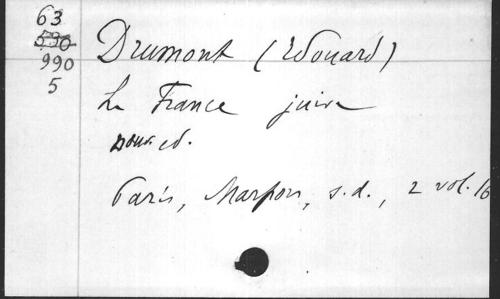 63
590
990
5
Drumont (Edouard)
La France juive
nouv. ed.
Paris, Marpon, s.d., 2 vol. 16